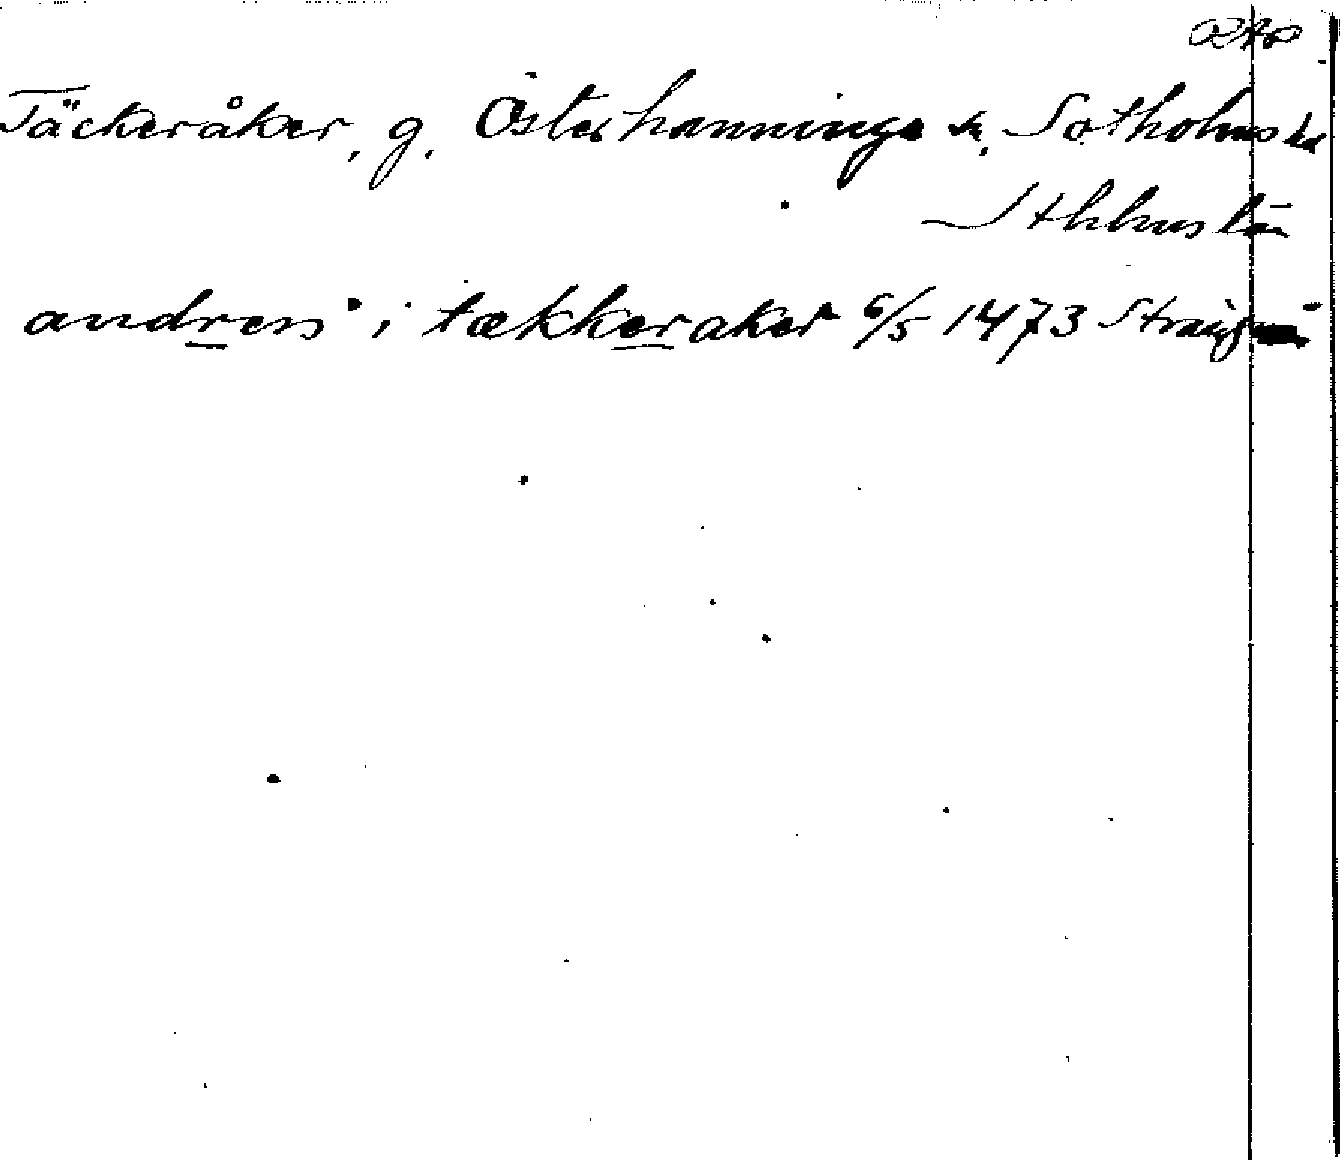 Täckeråker, g. Österhanninge sn, Sotholms hd
Sthlms län
andress i tækkeraker 6/5 1473